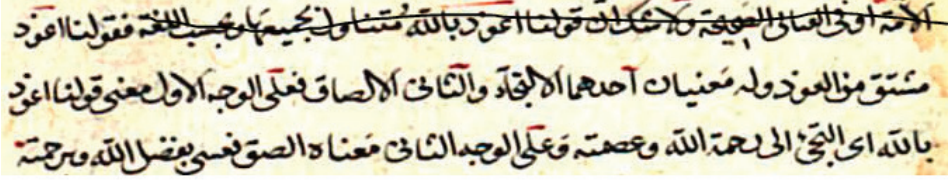 الامة او فى المعانى الصحيحة ولا شك ان قولنا اعوذ بالله متناول بجميعها وبحسب اللغة فقولنا اعوذ
مشتق من العوذ وله معنيان احدهما الالتجآء والثانى الالصاق فعلى الوجه الاول معنى قولنا اعوذ
بالله اى التجئ الى رحمة الله وعصمته وعلى الوجه الثانى معناه الصق نفسى بفضل الله وبرحمته